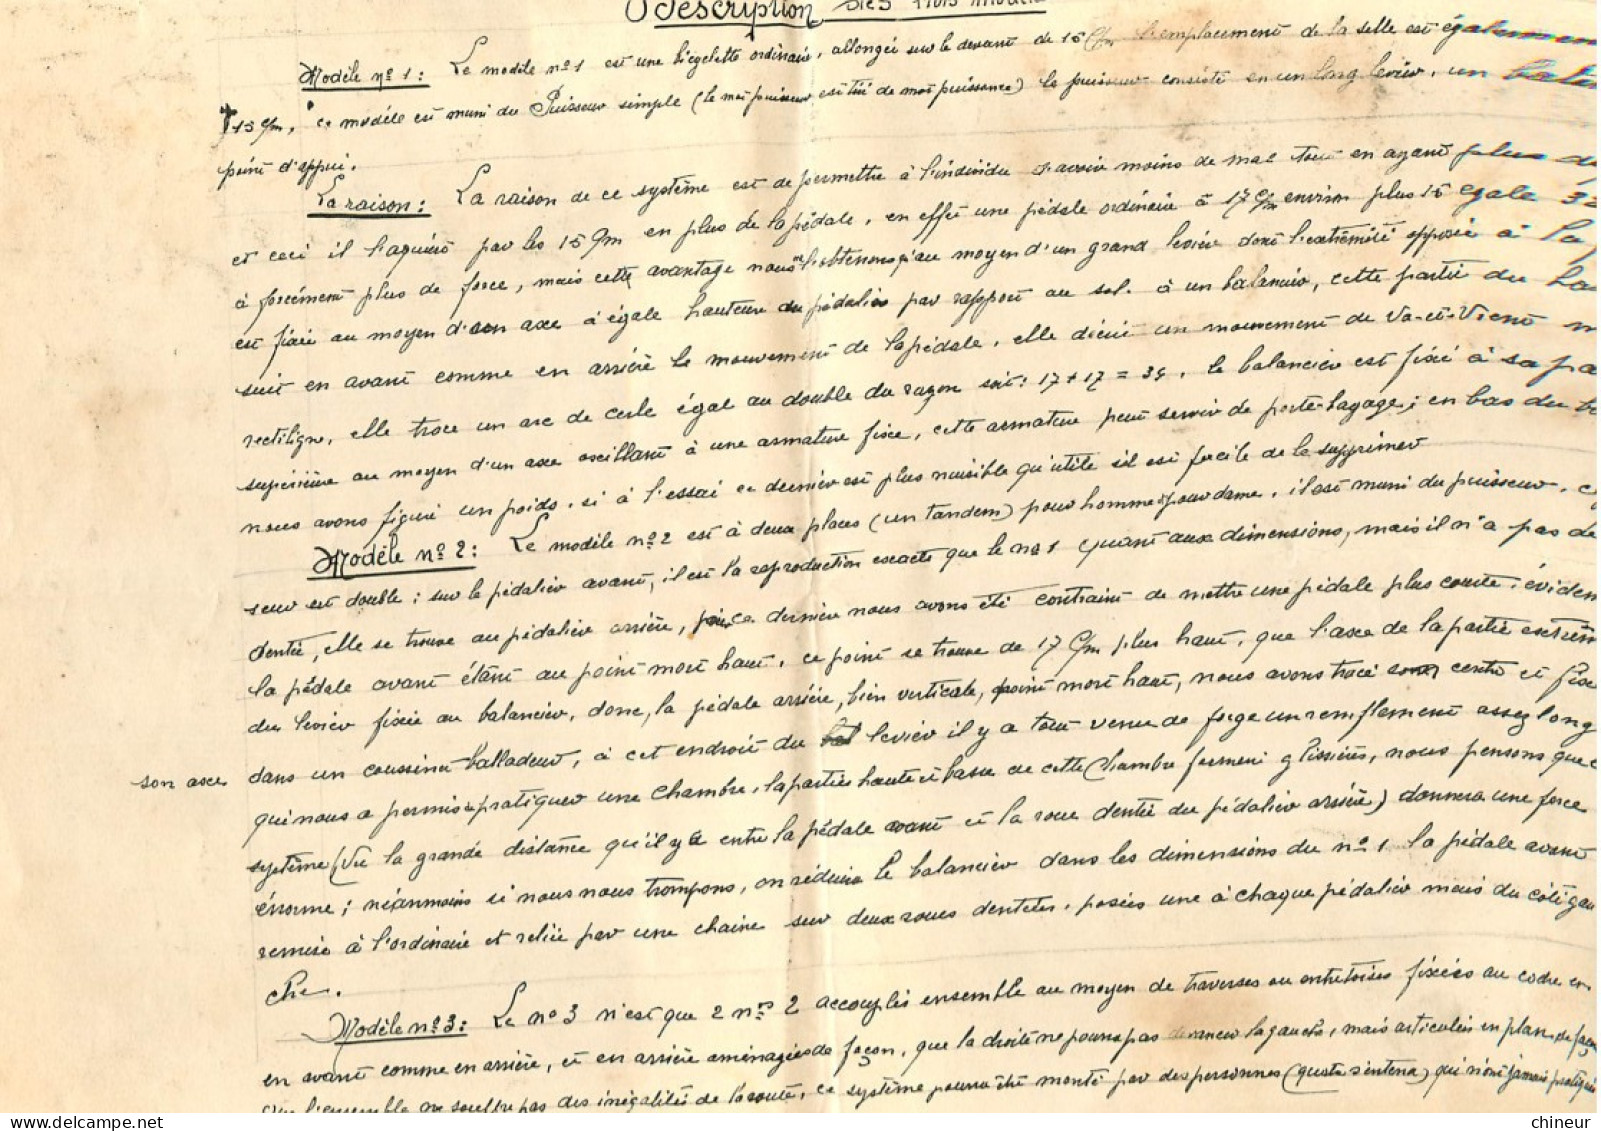 Description des trois modèles
Modèle nº 1: Le modèle nº 1 est une bicyclette ordinaire, allongée sur le devant de 15 c/m l'emplacement de la selle est également
+ 15 c/m, ce modèle est muni du Puisseur simple (le mot puisseur est tiré de mot puissance) le puisseur consiste en un long levier, un
point d'appui.
La raison: La raison de ce système est de permettre à l'individu d'avoir moins de mal tout en ayant plus de
et ceci il l'aquiert par les 15 c/m en plus de la pédale, en effet une pédale ordinaire à 17 c/m environ plus 15 égale 32
à forcément plus de force, mais cette avantage nous ne l'obtenons qu'au moyen d'un grand levier dont l'extrémité opposée à la
est fixée au moyen d'son axe à égale hauteur du pédalier par rapport au sol. à un balancier, cette partie du
suit en avant comme en arrière le mouvement de la pédale, elle décrit un mouvement de Va-et-Vient
rectiligne, elle trace un arc de cercle égal au double du rayon soit: 17 + 17 = 34, le balancier est fixé à sa
supérieure au moyen d'un axe oscillant à une armature fixe, cette armature peut servir de porte-bagage; en bas du
nous avons figuré un poids, si à l'essai ce dernier est plus nuisible qu'utile il est facile de le supprimer
Modèle nº 2: Le modèle nº 2 est à deux places (un tandem) pour homme & pour dame, il est muni du puisseur,
seur est double; sur le pédalier avant, il est la reproduction exacte que le nº 1 quant aux dimensions, mais il n'a pas de
dentée, elle se trouve au pédalier arrière, ce dernière nous avons été contraint de mettre une pédale plus courte,
la pédale avant étant au point mort haut, ce point se trouve de 17 c/m plus haut, que l'axe de la partie
du levier fixée au balancier, donc, la pédale arrière, bien verticale, point mort haut, nous avons tracé centre et fixé
son axe dans un coussinet-balladeur, à cet endroit du levier il y a tout venu de forge un renflement assez long
qui nous a permis de pratiquer une chambre, la parties haute et basse de cette Chambre forment glissières, nous pensons que
système (Vu la grande distance qu'il y a entre la pédale avant et la roue dentée du pédalier arrière) donnera une force
énorme; néanmoins si nous nous trompons, on réduira le balancier dans les dimensions du nº 1 la pédale avant
remise à l'ordinaire et reliée par une chaine sur deux roues dentées, posées une à chaque pédalier mais du côté gau
che.
Modèle nº 3: Le nº 3 n'est que 2 nos 2 accouplés ensemble au moyen de traverses ou entretoises fixées au cadre en
en avant comme en arrière, et en arrière aménagées de façon, que la droite ne pourra pas devancer la gauche, mais articulées en plan, de façon
que l'ensemble ne souffre pas des inégalités de la route, ce système pourra être monté par des personnes (quatre s'entend) qui n'ont jamais pratiqué
chineur